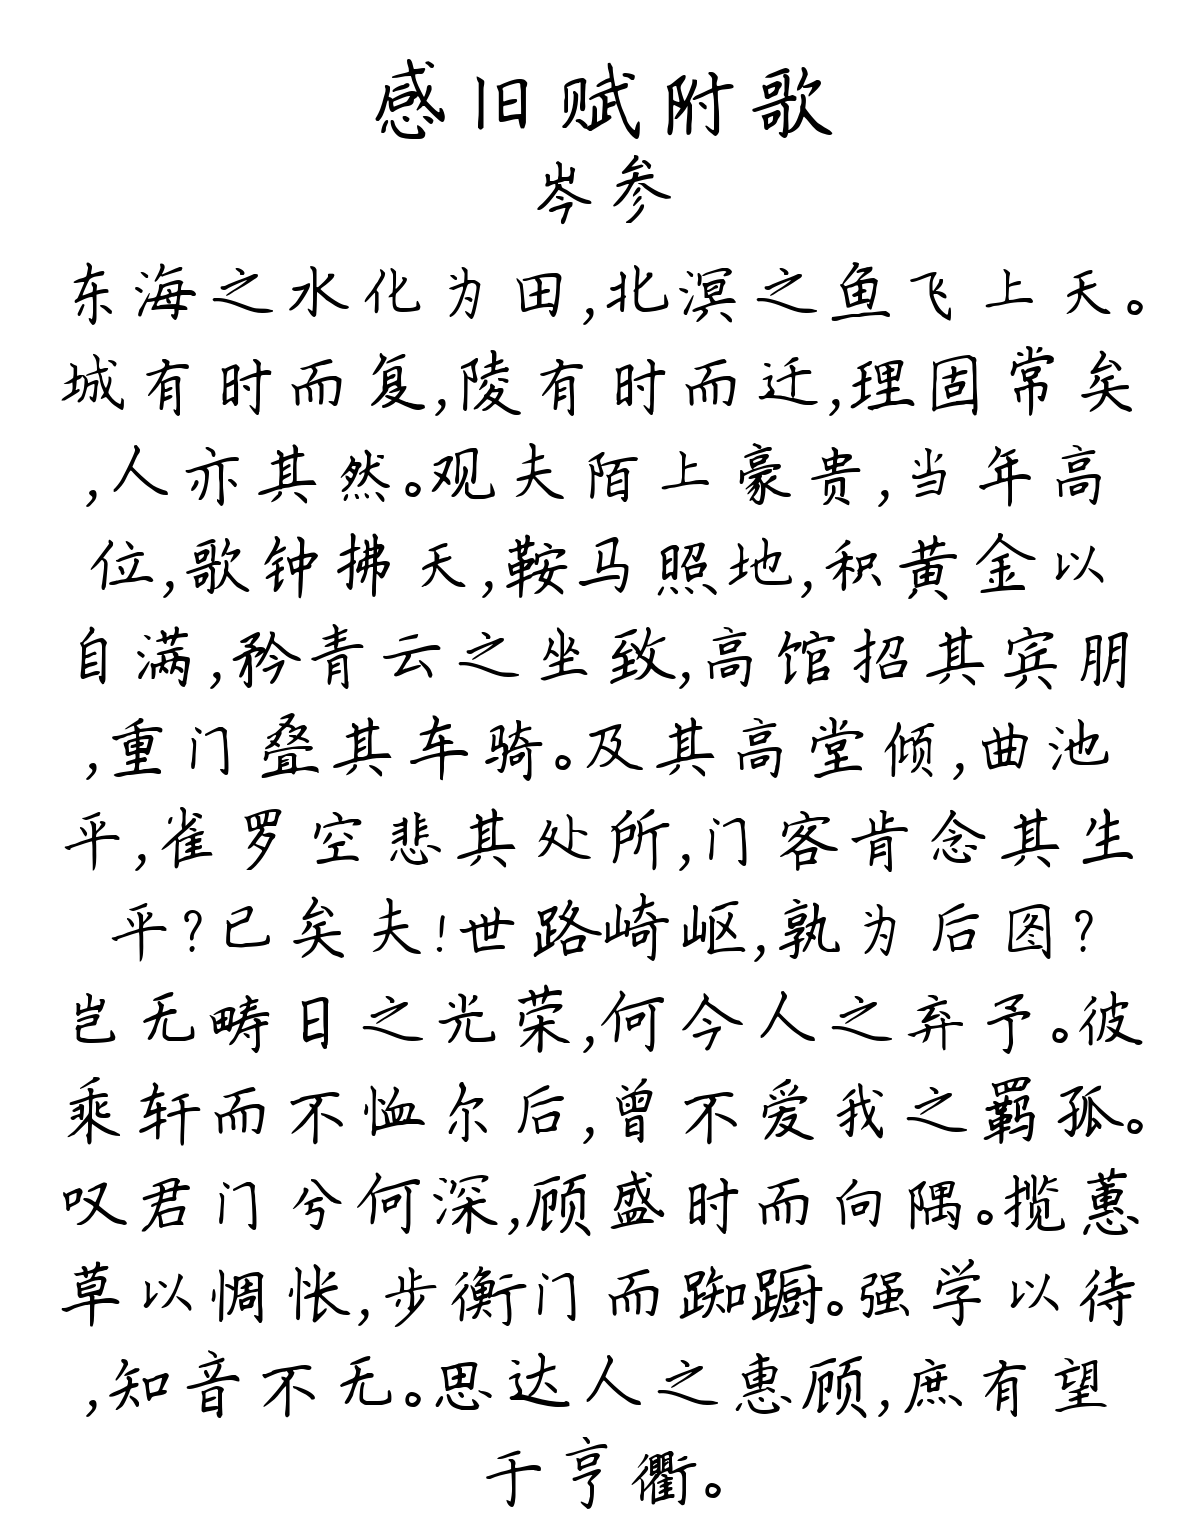 感旧赋附歌
岑参
东海之水化为田,北溟之鱼飞上天。
城有时而复,陵有时而迁,理固常矣
,人亦其然。观夫陌上豪贵,当年高
位,歌钟拂天,鞍马照地,积黄金以
自满,矜青云之坐致,高馆招其宾朋
,重门叠其车骑。及其高堂倾,曲池
平,雀罗空悲其处所,门客肯念其生
平?已矣夫!世路崎岖,孰为后图?
岂无畴日之光荣,何今人之弃予。彼
乘轩而不恤尔后,曾不爱我之羁孤。
叹君门兮何深,顾盛时而向隅。揽蕙
草以惆怅,步衡门而踟蹰。强学以待
,知音不无。思达人之惠顾,庶有望
于亨衢。